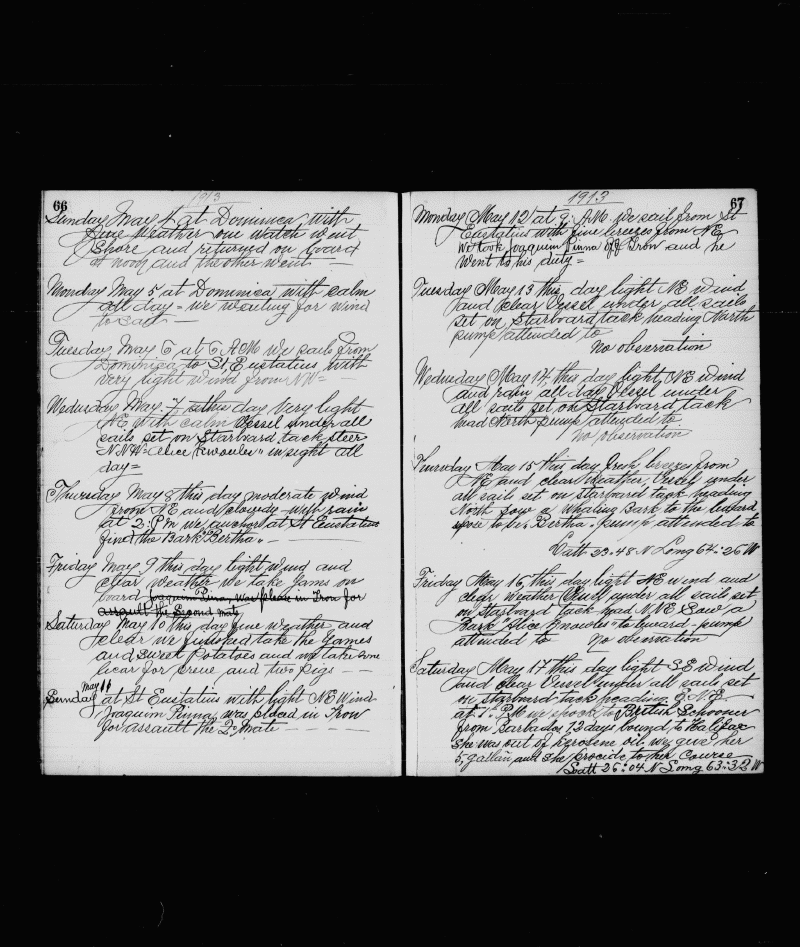 66
1913
Sunday May 4 at Dominica with
fine Weather one watch went
Shore and returned on board
at noon and the other went
Monday May 5 at Dominica with calm
all day = we waiting for wind
to sail
Tuesday May 6 at 6 AM we sails from
Dominica to St, Eustatius with
very light wind from NW =
Wednesday May. 7 this day Very light
NE with calm Vessel under all
sails set on Starboard tack steer
N.NW. Alice Knowles" in sight all
day=
Thursday May 8 this day moderate wind
from NE and cloudy with rain
at 2. P.m we anchor at St Eustatius
find the Bark Bertha" -
Friday May 9 this day light wind and
clear weather we take Yams on
board Joaquim Pina, was place in Iron for
assault the Second mate
Saturday May 10 this day fine weather and
clear we finished take the Yames
and Sweet Potatoes and we take some
licar for crue, and two pigs
Sunday May 11 at St Eustatius with light NE Wind
Joaquim Pinna, was placed in Iron
for assault the 2º Mate
1913
67
Monday May 12 at 9: AM We sail from St
Eustatius with fine breezes from NE
we took Joaquim Pinna off Iron and he
Went to his duty=
Tuesday May 13 this day light NE wind
and clear Vessel under all sails
set on Starboard tack heading North
pump attended to
No observation
Wednesday May 14, this day light, NE wind
and rain all day Vessel under
all sails set on Starboard, tack
head North pump attended to
no observation
Thursday May 15 this day fresh breezes from
NE and clear Weather, Vessel under
all sails set on starboard tack heading
North saw a whaling Bark to the leeward
spoke to be. Bertha. pump attended to
Latt 23.48 N Long 64:26 W
Friday May 16, this day light NE wind and
clear weather Vessel under all sails set
on starboard tack head NNE Saw a
Bark "Alice Knowles" to leward - pump
attended to No observation
Saturday May 17 this day light SE Wind
and clear Vessel under all sails set
on starboard tack heading E.NE
at 1. P.M we spock to British Schooner
from Barbados, 13 days bound to Halifax
She was out of kerosene oil we give her
5, gallan and she procide to her Course
Latt 26:04 N Long 63:32 W